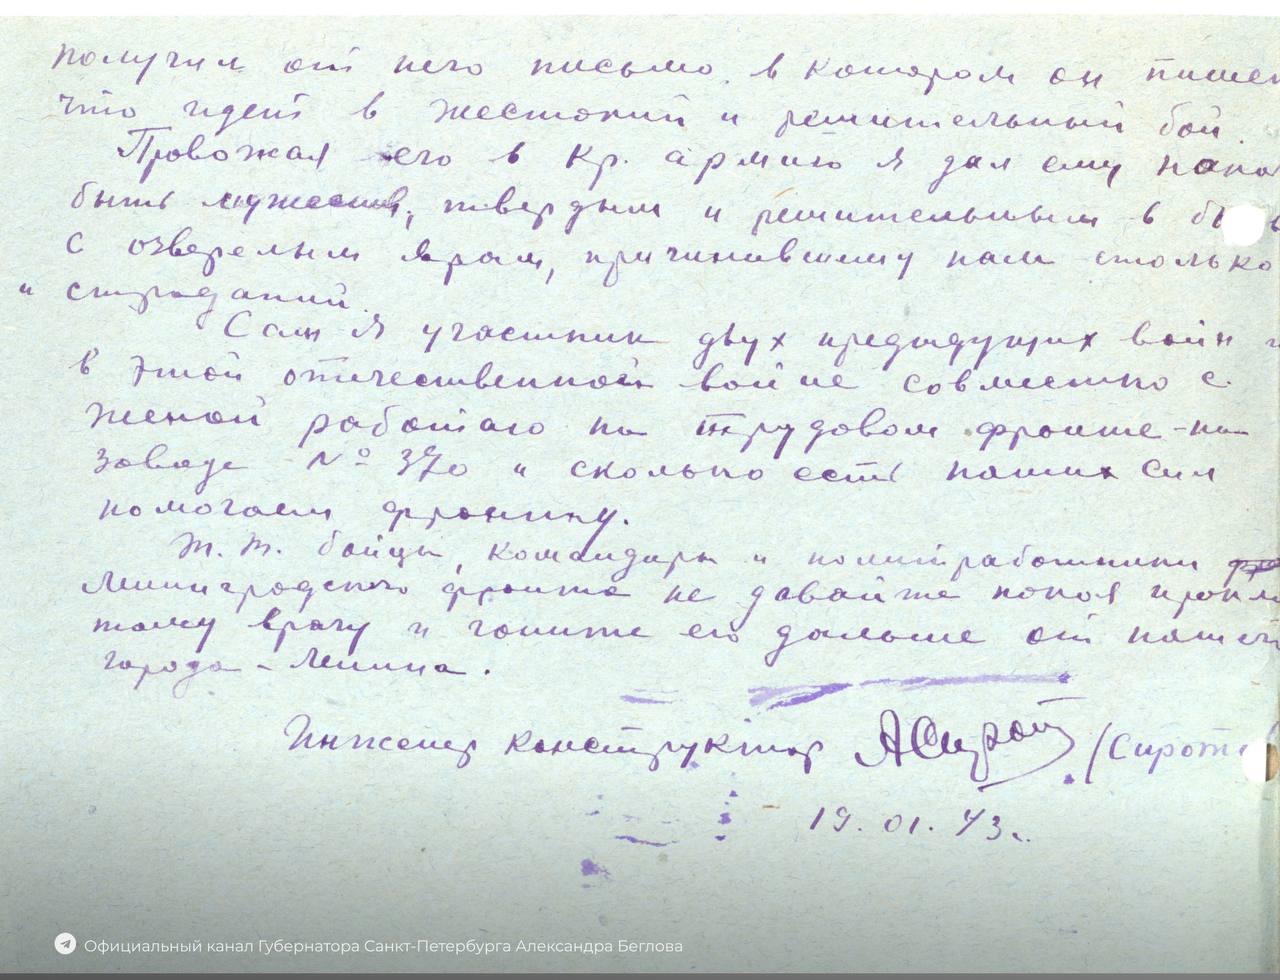 получил от него письмо, в котором он пишет
что идет в жестокий и решительный бой.
Провожая его в Кр. армию я дал ему нака
быть мужеств, твердым и решительным в б
с озверелым врагом, причинившему нам столько
и страданий.
Сам я участник двух предыдущих войн и
в этой отечественной войне совместно с
женой работаю на трудовом фронте-на
заводе № 370 и сколько есть наших сил
помогаем фронту.
Т.т. бойцы, командиры и политработники
Ленинградского фронта не давайте покоя прокля
тому врагу и гоните его дальше от нашего
города - Ленина.
Инженер конструктор АСирот (Сирот
19.01.43г.
Официальный канал Губернатора Санкт-Петербурга Александра Беглова